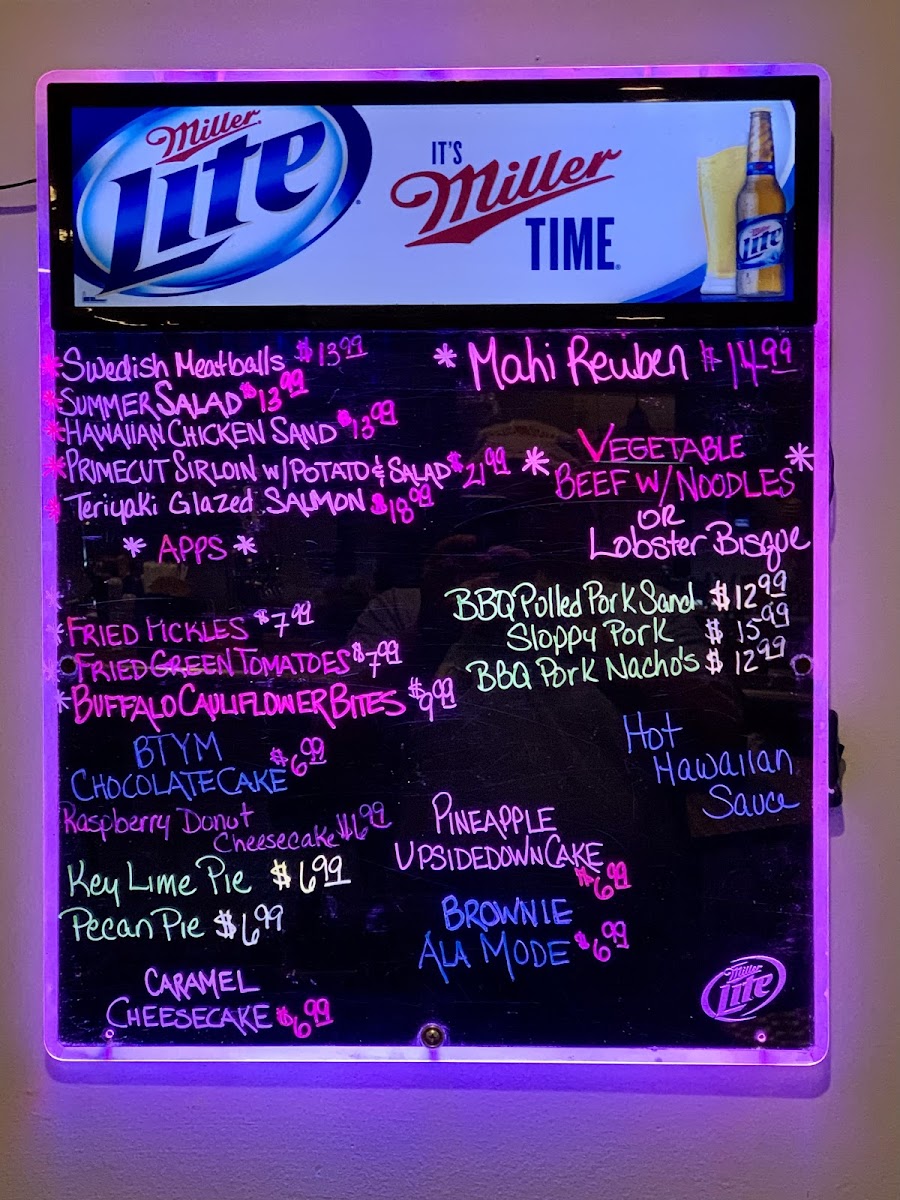 Miller
Lite
IT'S
Miller
TIME
Miller
Lite
* Swedish Meatballs $13.99
* SUMMER SALAD $13.99
* HAWAIIAN CHICKEN SAND $13.99
* PRIMECUT SIRLOIN W/POTATO & SALAD $21.99
* Teriyaki Glazed SALMON $18.99
* APPS *
* FRIED PICKLES $7.99
* FRIED GREEN TOMATOES $7.99
* BUFFALO CAULIFLOWER BITES $9.99
BTYM
CHOCOLATE CAKE $6.99
Raspberry Donut
Cheesecake $6.99
Key Lime Pie $6.99
Pecan Pie $6.99
CARAMEL
CHEESECAKE $6.99
* Mahi Reuben $14.99
* VEGETABLE *
BEEF W/ NOODLES
OR
Lobster Bisque
BBQ Pulled Pork Sand $12.99
Sloppy Pork $15.99
BBQ Pork Nacho's $12.99
Hot
Hawaiian
Sauce
PINEAPPLE
UPSIDEDOWN CAKE
$6.99
BROWNIE
ALA MODE $6.99
Miller
Lite